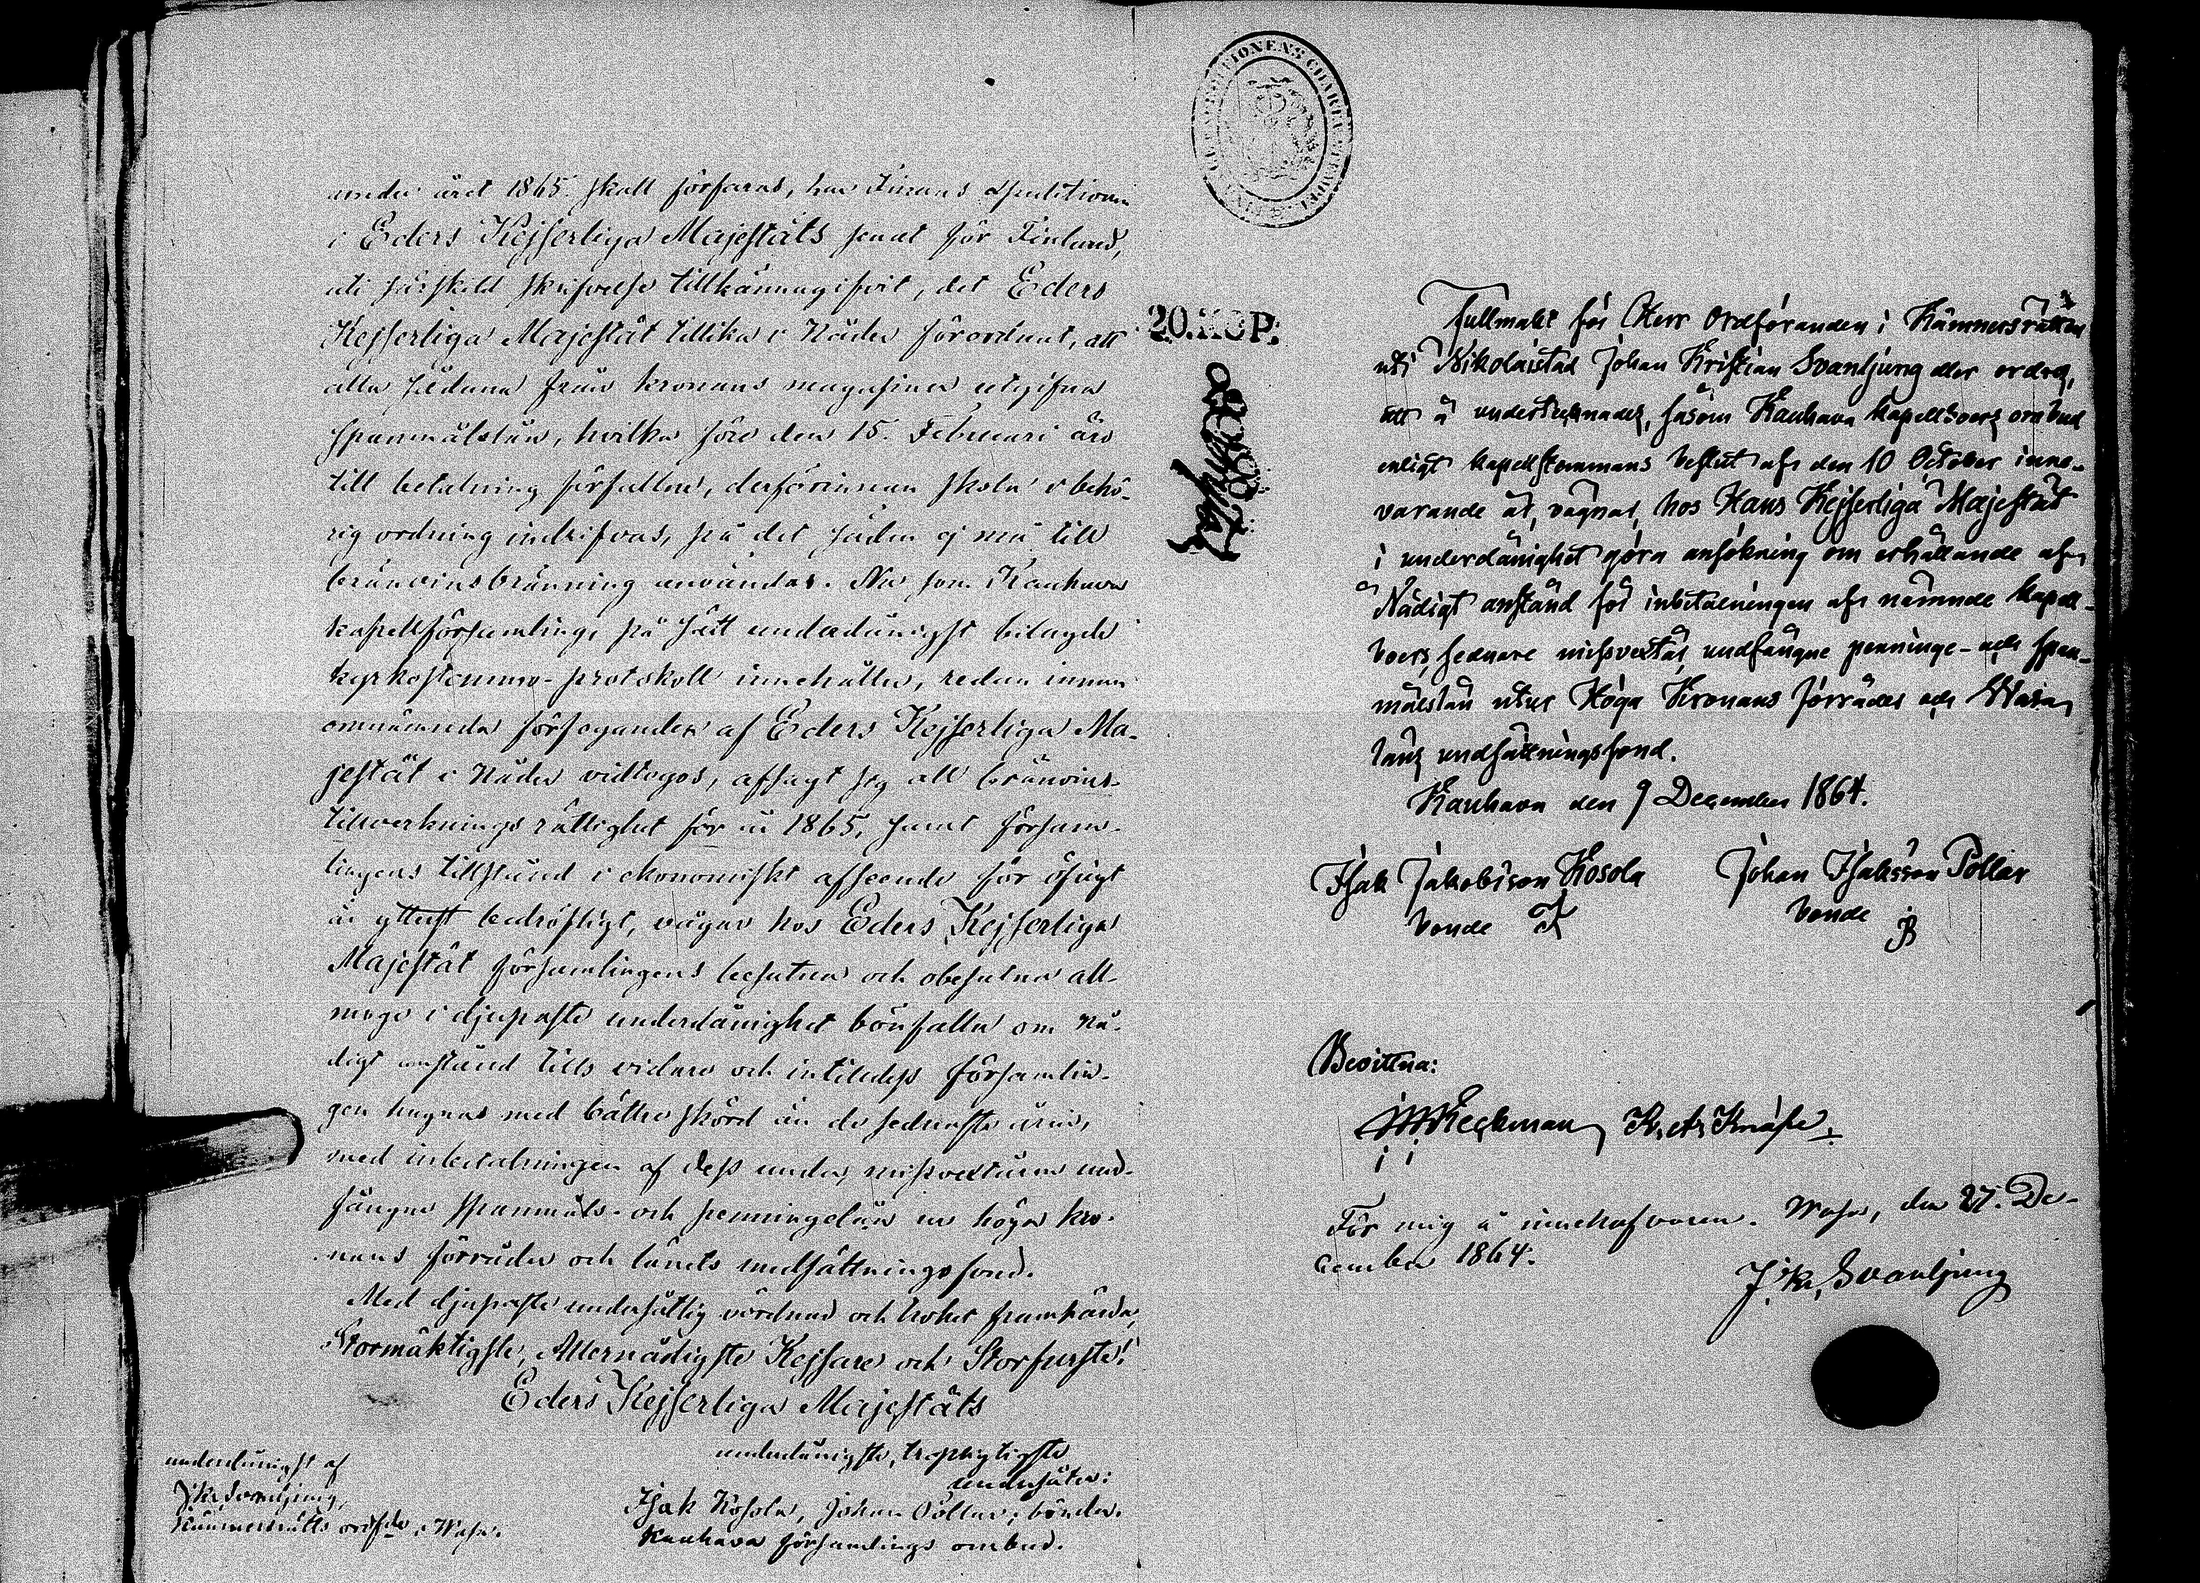 under året 1865 skall förfaras, har Finans expeditionen
i Eders Kejserliga Majestäts senat för Finland,
uti särskild skrifvelse tillkännagifvit, det Eders
Kejserliga Majestät tillika i Nåder förordnat, att
alla sådana från kronans magasiner utgifna
spanmålslån, hvilka före den 15. Februari äro
till betalning förfallna, derförinnan skola i behö-
rig ordning indrifvas, på det säden ej må till
bränvinsbränning användas. Nu som Kauhava
kapellförsamling, på sätt underdånigst bilagde
kyrkostämmo-protokoll innehåller, redan innan
omnämnda förfogande af Eders Kejserliga Ma-
jestät i Nåder vidtogos, afsagt sig all bränvins-
tillverknings rättighet för år 1865, samt försam-
lingens tillstånd i ekonomiskt afseende för öfrigt
är ytterst bedröfligt, vågar hos Eders Kejserliga
Majestät församlingens besutna och obesutna all-
moge i djupaste underdånighet bönfalla om nå-
digt anstånd tills vidare och intilldess församlin-
gen hugnas med bättre skörd än de sednaste åren,
med inbetalningen af dess under missvextåren und-
fångna spanmåls- och penningelån ur höga kro-
nans förråder och länets undsättningsfond.
Med djupaste undersåtlig vördnad och trohet framhärda,
Stormäktigste, Allernådigste Kejsare och Storfurste!
Eders Kejserliga Majestäts
underdånigste, tropligtigste
undersåter:
Isak Kosola, Johan Pollar, bönder.
Kauhava församlings ombud.
underdånigst af
J. Kr. Svanljung,
Kämnersrätts ordf:de i Wasa.
FINANS EXPEDITIONENS CHARTÆ STEMPEL
20. KOP:
Fullmakt för Herr Ordföranden i Kämnersrätten
uti Nikolaistad Johan Kristian Svanljung eller ordres,
att å undertecknades, såsom Kauhava kapellboers ombud
enligt kapellstämmans beslut af den 10 October inne-
varande år, vägnar, hos Hans Kejserliga Majestät
i underdånighet göra ansökning om erhållande af
Nådigt anstånd för inbetalningen af nämnde kapell-
boers sednare missvextår undfångne penninge- och span-
målslån utur Höga Kronans förråder och Wasa
läns undsättningsfond.
Kauhava den 9 December 1864.
Isak Jakobsson Kosola Johan Isaksson Pollar
bonde bonde
Bevittna:
Heckman
För mig å innehafvaren. Wasa, den 27. De-
cember 1864.
J. Kr. Svanljung